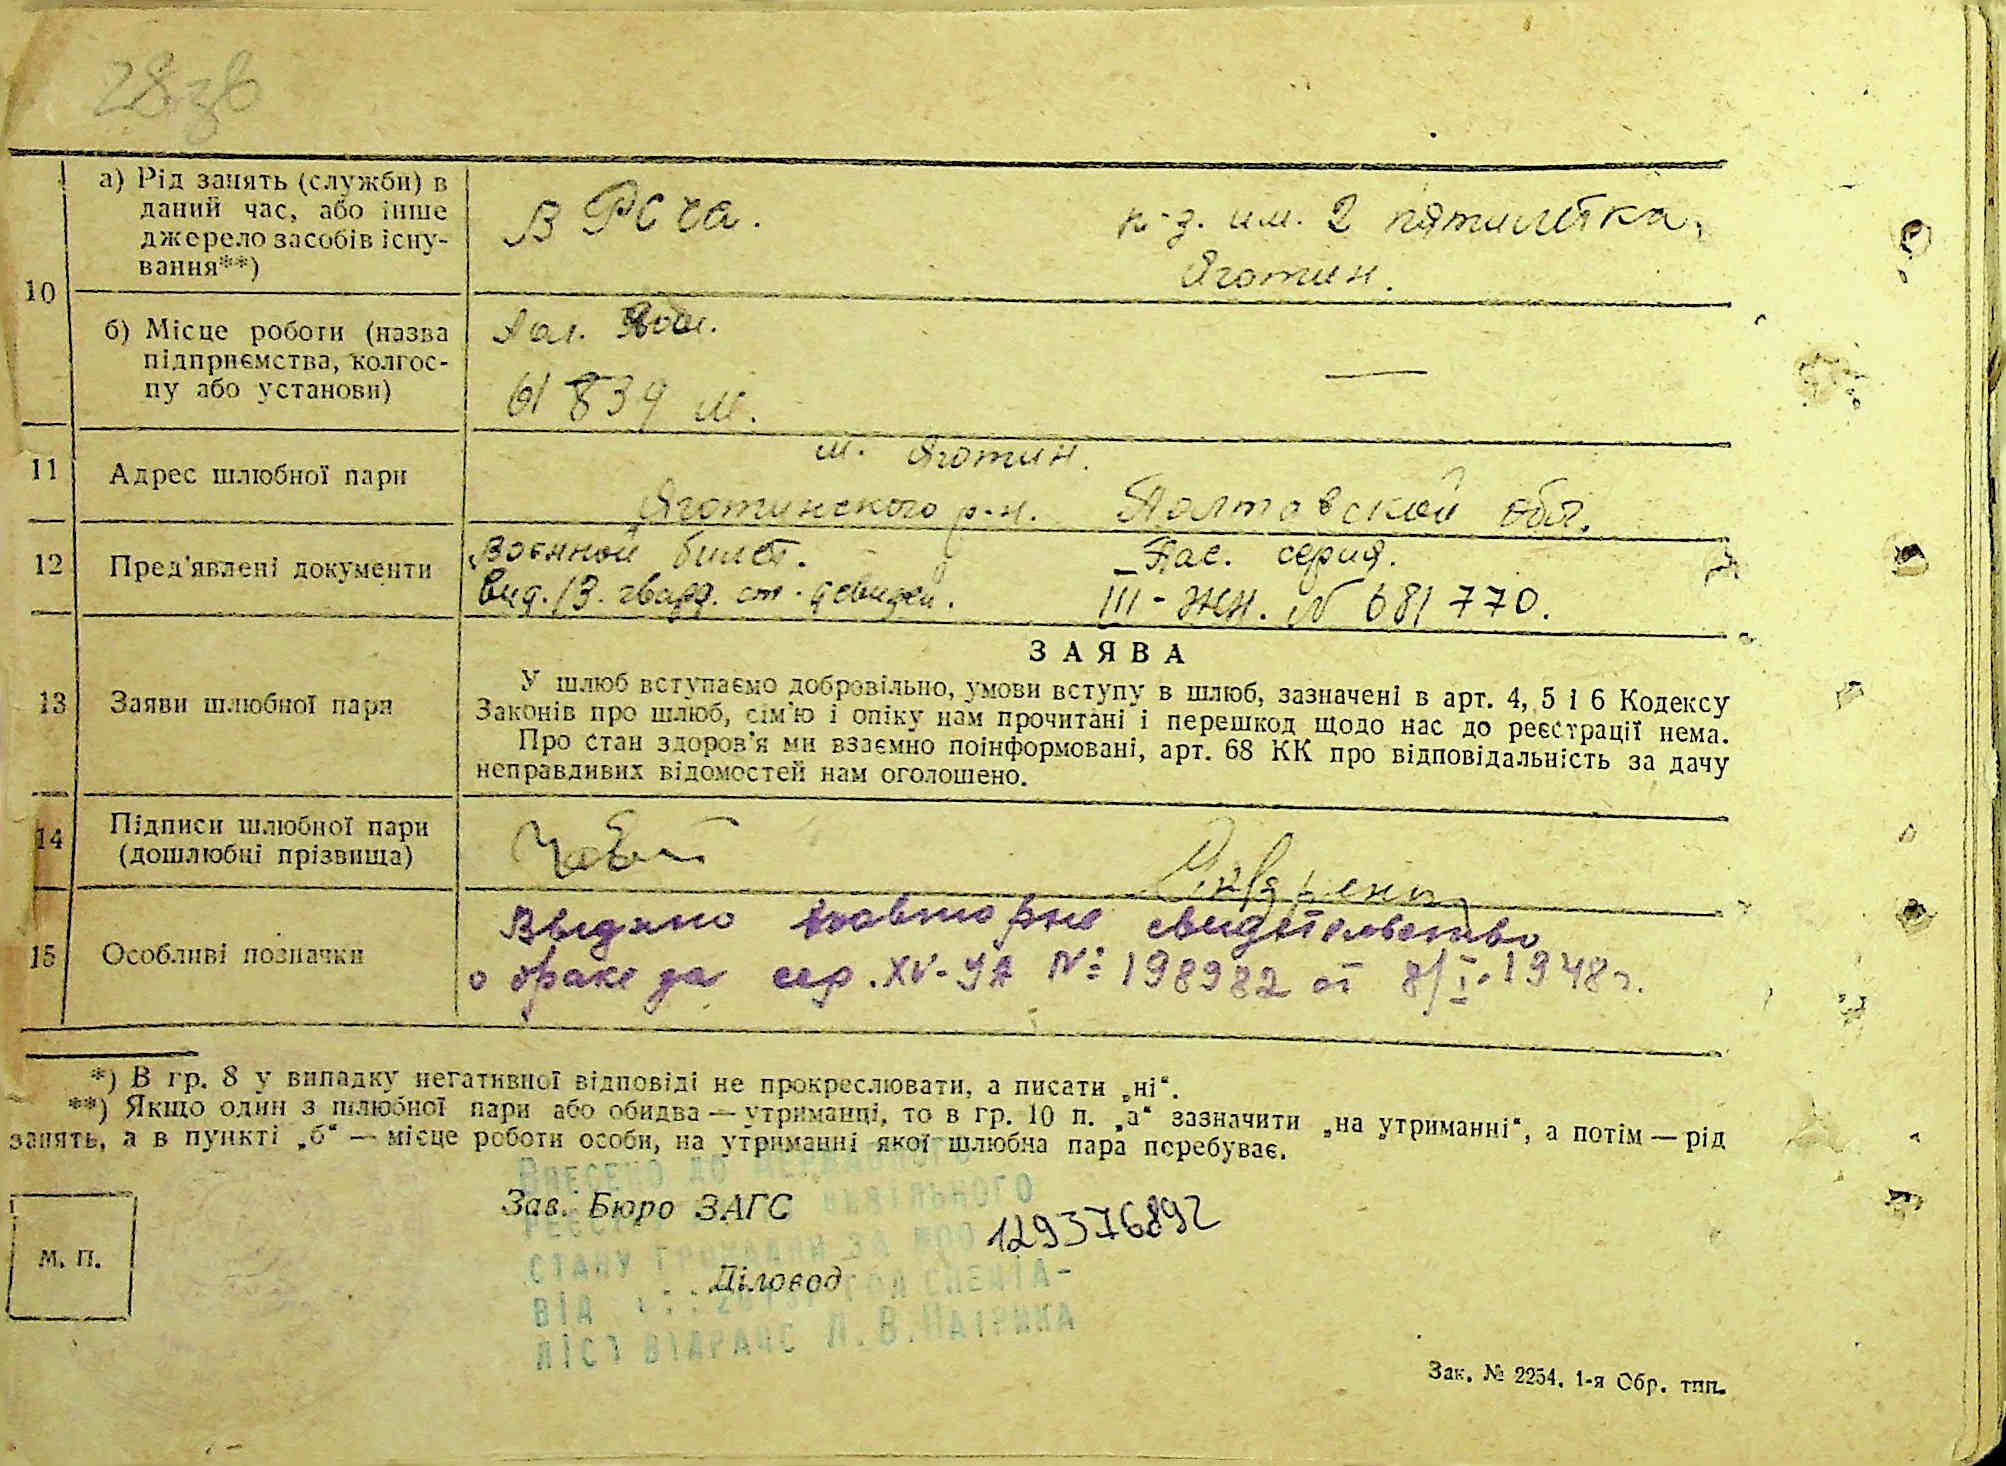 а) Рід занять (службы) в
даний час, або інше
джерело засобів існу-
вання**)
В РСЧА.
к-з. им. 2 пятилетка,
Яготин.
10
б) Місце роботи (назва
підприємства, колгос-
пу або установи)
61839 м.
—
11
Адрес шлюбної пари
м. Яготин.
Яготинского р-н. Полтовской обл.
12
Пред'явлені документи
Воєнной билет.
Вид. 13. гвард.
Пас. серия.
III-ЖН. N 681770.
13
Заяви шлюбної пари
ЗАЯВА
У шлюб вступаємо добровільно, умови вступу в шлюб, зазначені в арт. 4, 5 і 6 Кодексу
Законів про шлюб, сім'ю і опіку нам прочитані і перешкод щодо нас до реєстрації нема.
Про стан здоров'я ми взаємно поінформовані, арт. 68 КК про відповідальність за дачу
неправдивих відомостей нам оголошено.
14
Підписи шлюбної пари
(дошлюбні прізвища)
15
Особливі позначки
Выдано повторне свидетельство
о браке за сер. XV-УА №: 198982 от 8/I-1948г.
*) В гр. 8 у випадку негативної відповіді не прокреслювати, а писати „ні“.
**) Якщо один з шлюбної пари або обидва — утриманці, то в гр. 10 п. „а“ зазначити „на утриманні“, а потім — рід
занять, а в пункті „б“ — місце роботи особи, на утриманні якої шлюбна пара перебуває.
ВНЕСЕНО ДО ДЕРЖАВНОГО
Зав. Бюро ЗАГС
129376892
СТАНУ ГРОМАДЯН ЗА №00
Діловод
ВІД
СПЕЦІА-
ЛІСТ ВІДРАЦС
М. П.
Зак. № 2254. 1-я Обр. тип.